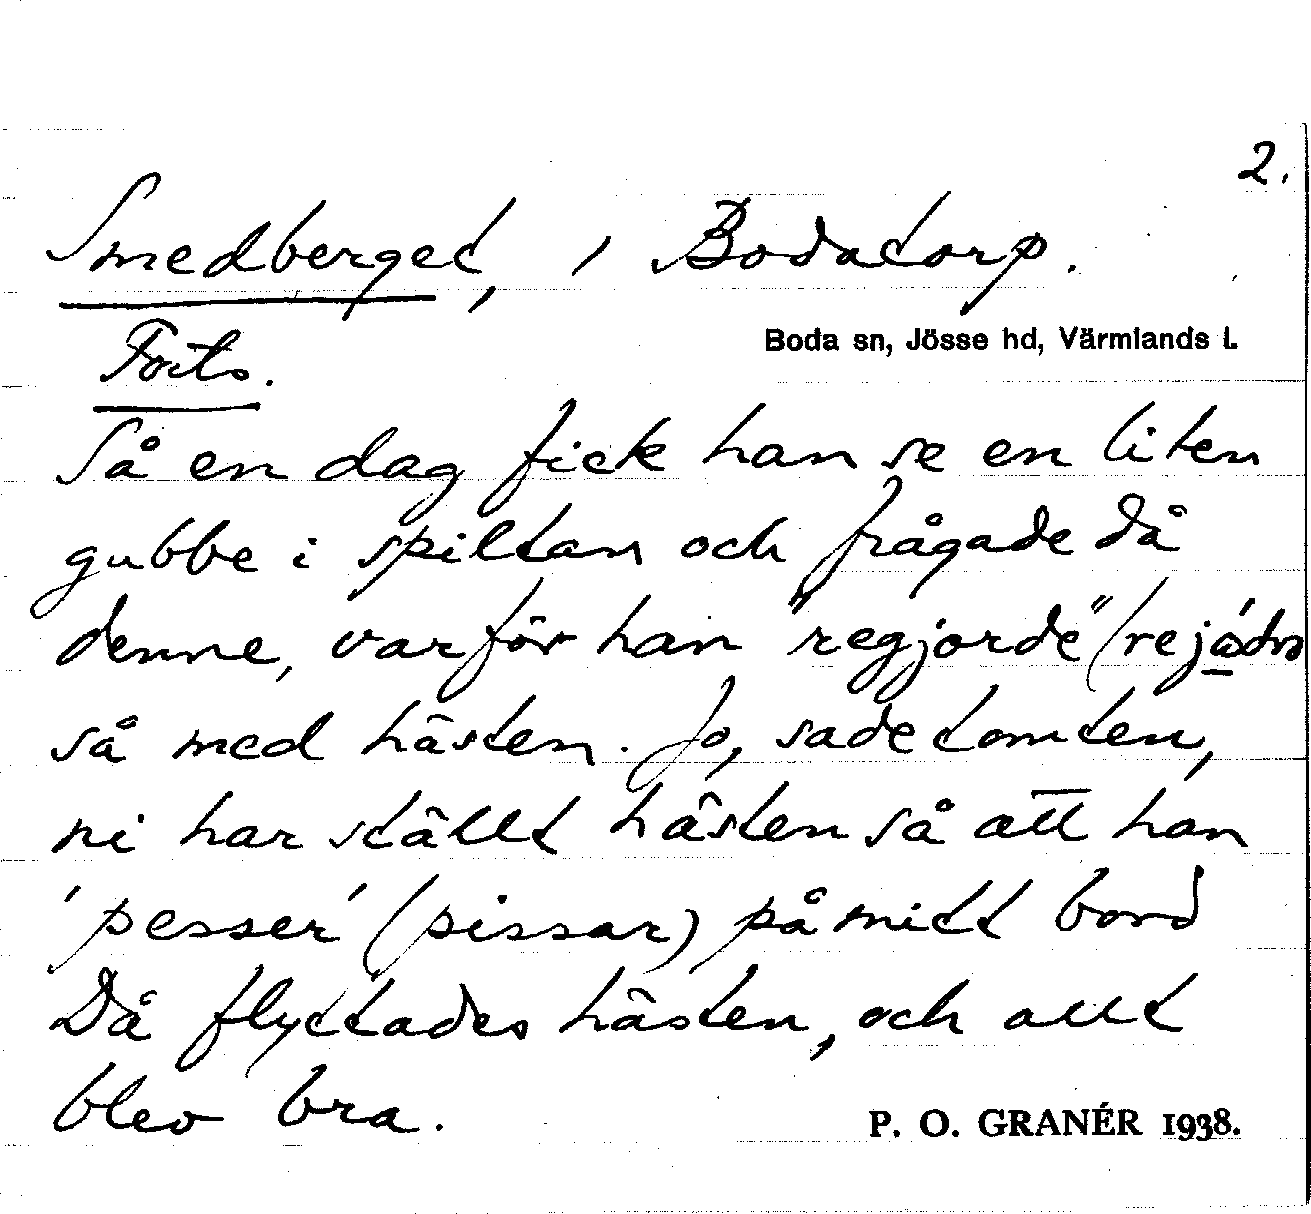 2.
Smedberget, i Bodatorp.
Boda sn, Jösse hd, Värmlands l.
Forts.
Så en dag fick han se en liten
gubbe i spiltan och frågade då
denne, varför han "regjorde" (
så med hästen. Jo, sade tomten,
ni har ställt hästen så att han
'pesser' (pissar) på mitt bord
Då flyttades hästen, och allt
blev bra.
P. O. GRANÉR 1938.